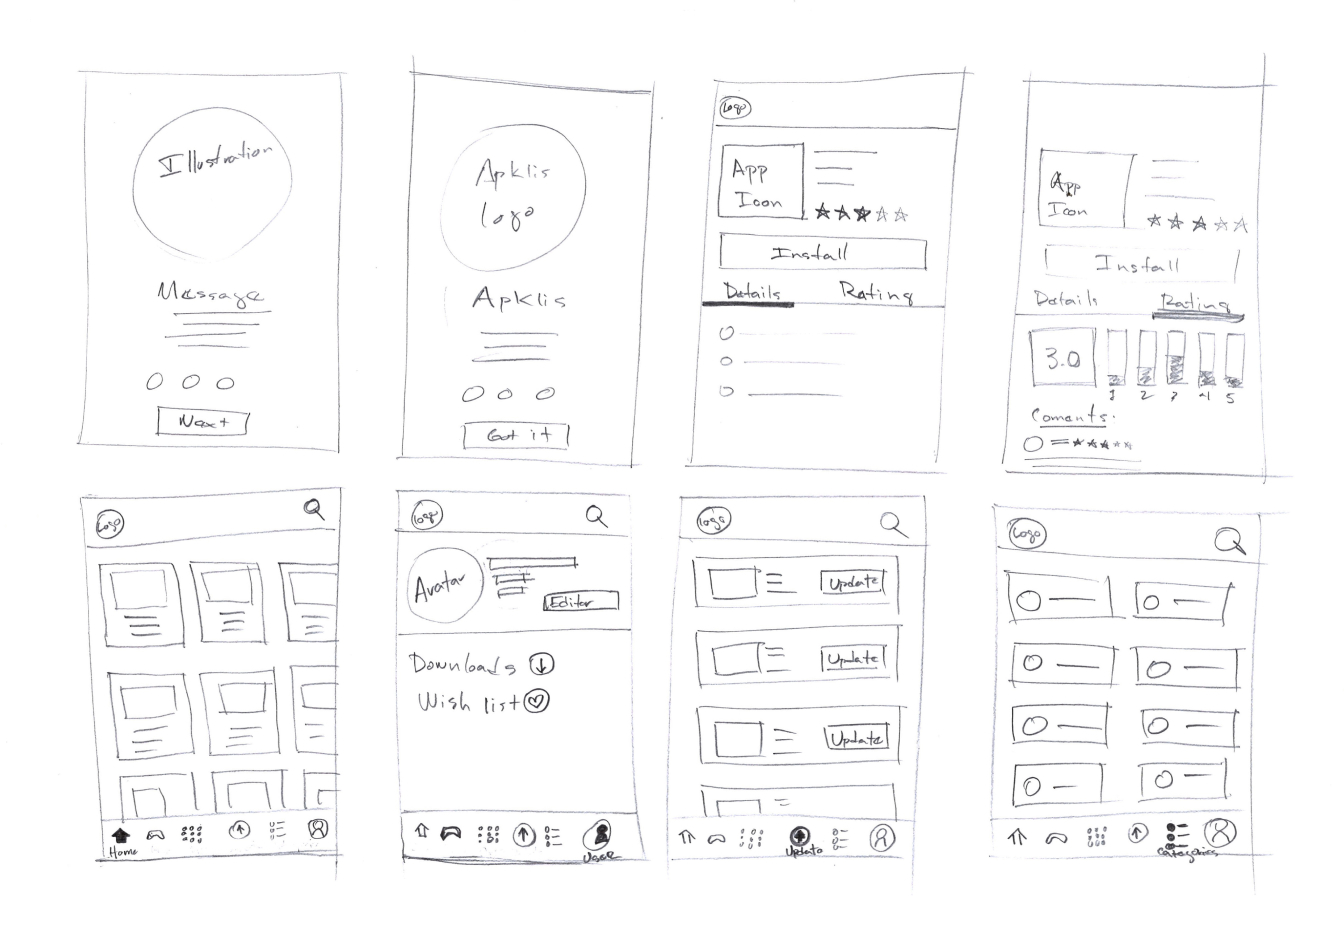 Illustration
Message
Next
Apklis
logo
Apklis
Got it
Logo
App
Icon
Install
Details Rating
App
Icon
Install
Details Rating
3.0
1 2 3 4 5
Coments.
Logo
Home
Logo
Avatar
Editar
Downloads
Wish list
User
Logo
Update
Update
Update
Update
Logo
Categories